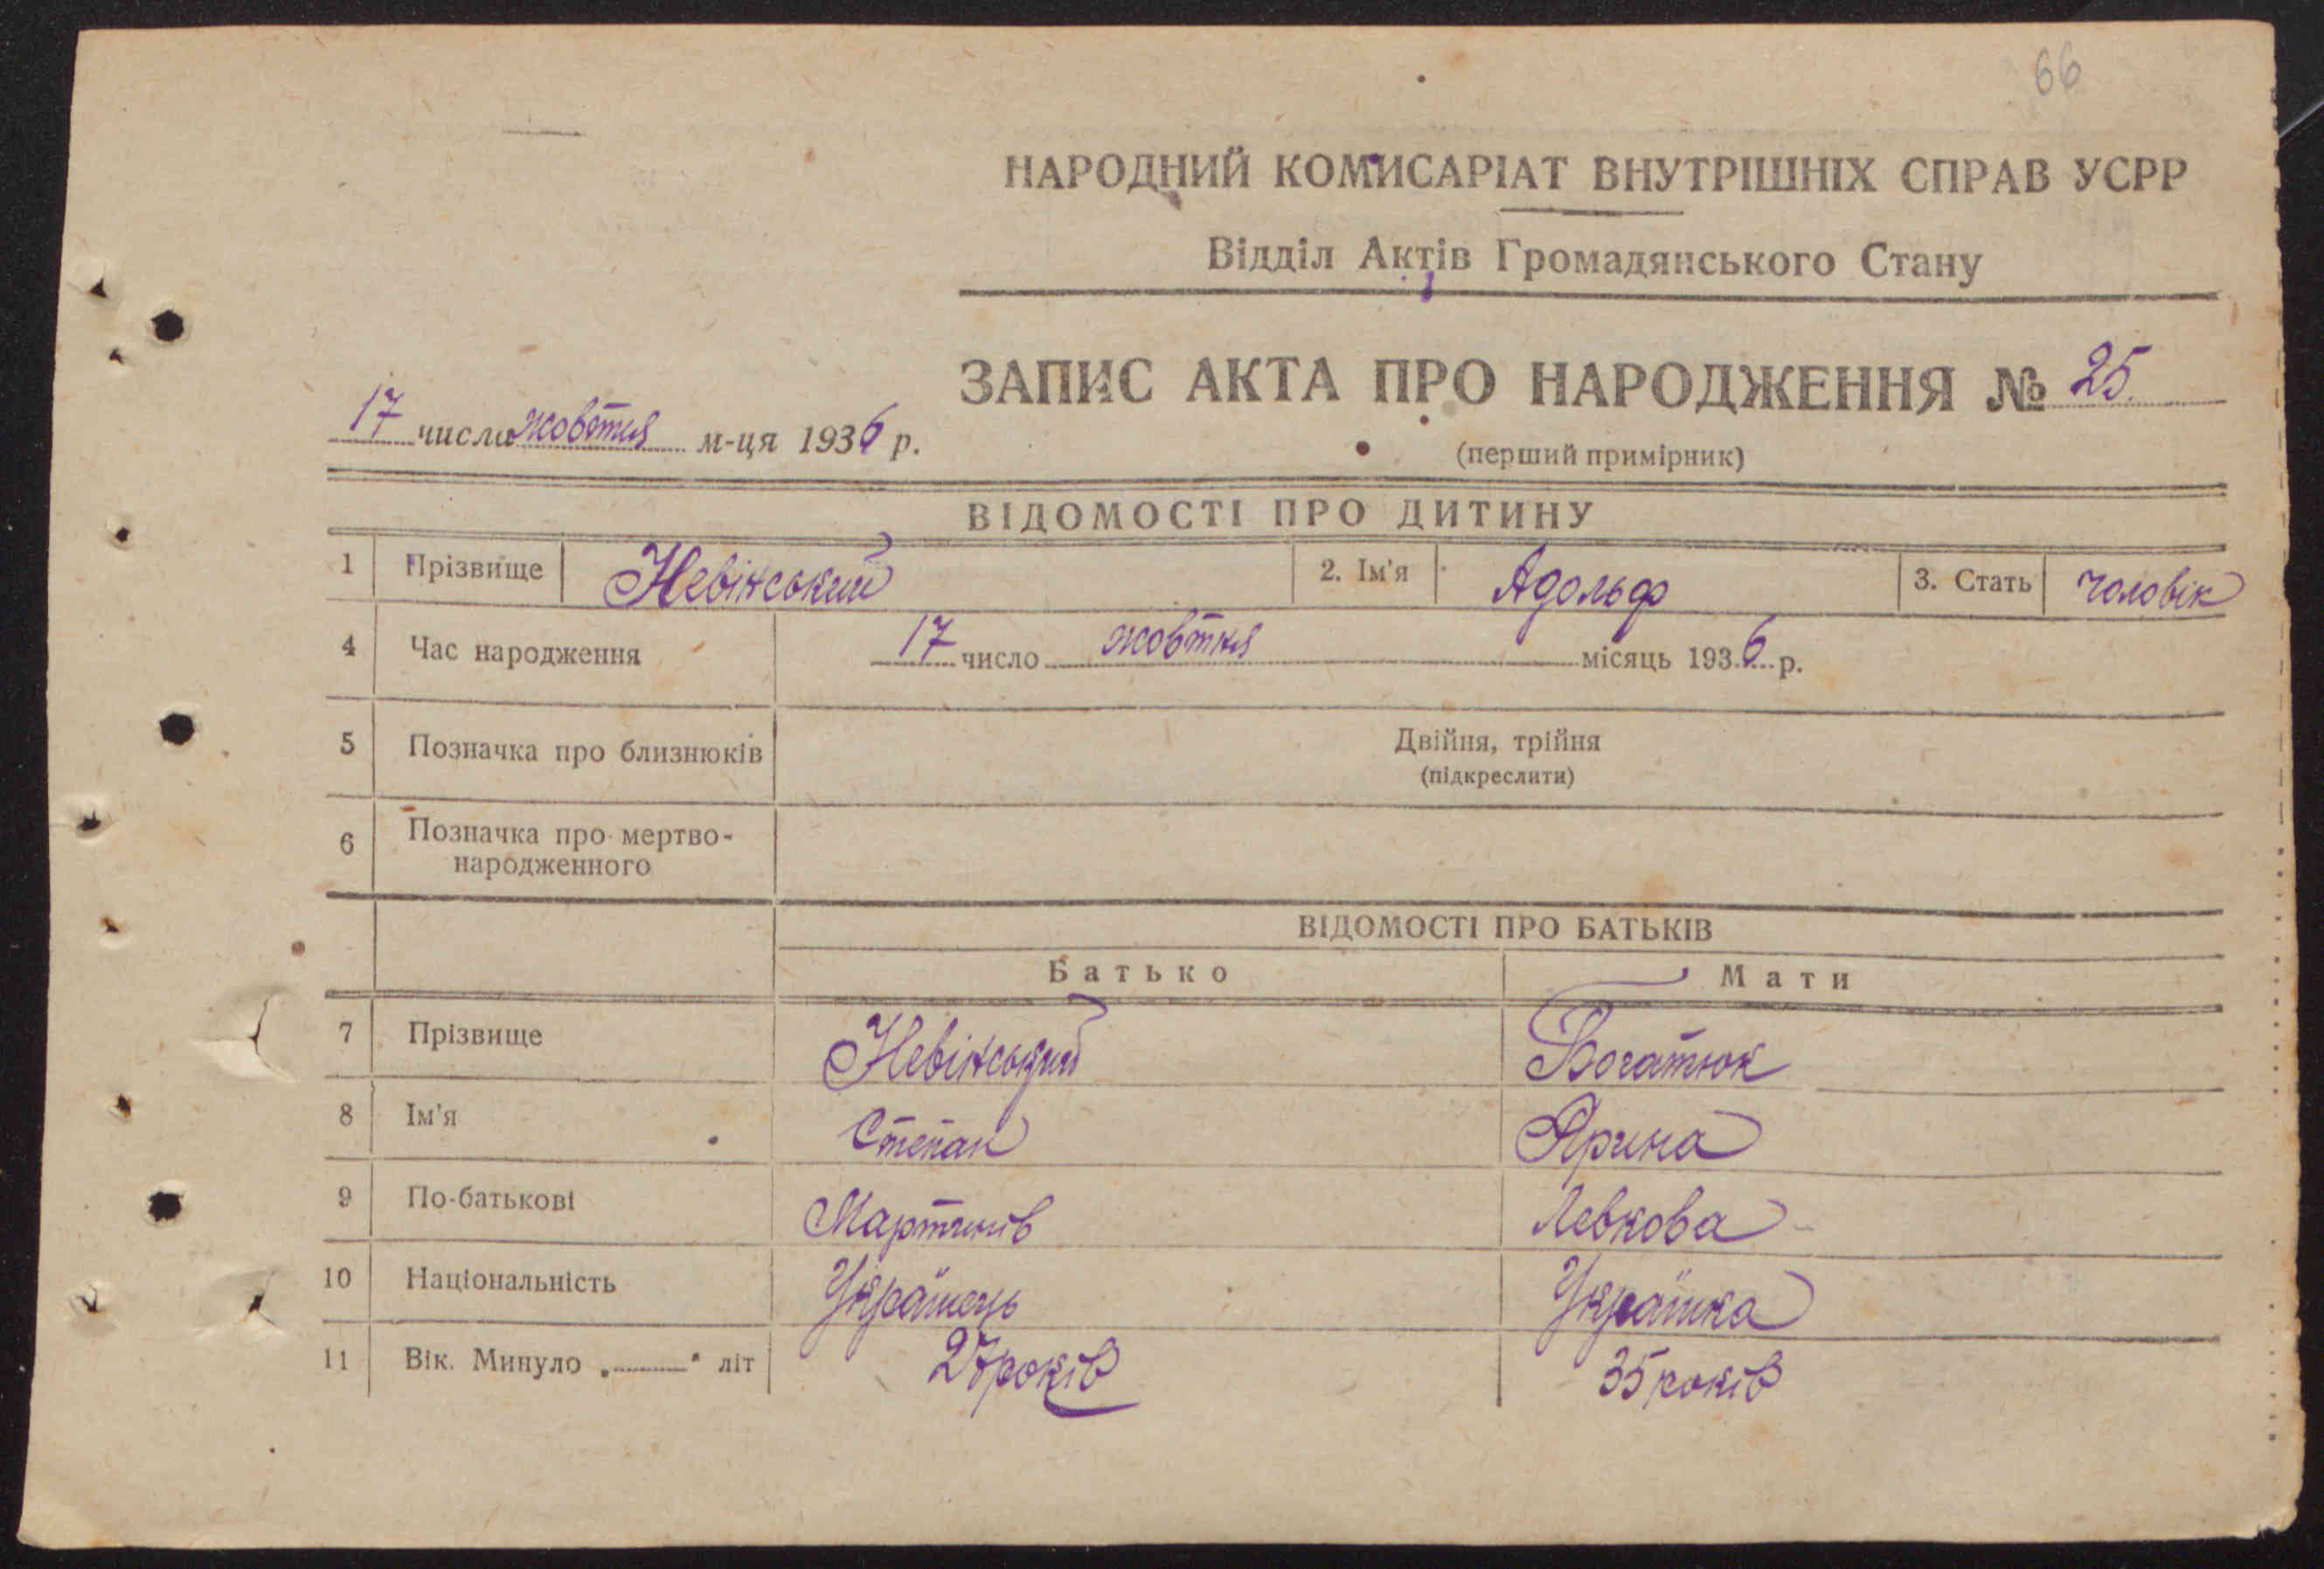 66
НАРОДНИЙ КОМИСАРІАТ ВНУТРІШНІХ СПРАВ УСРР
Відділ Актів Громадянського Стану
ЗАПИС АКТА ПРО НАРОДЖЕННЯ № 25.
17 числа жовтня м-ця 1936 р.
(перший примірник)
ВІДОМОСТІ ПРО ДИТИНУ
1 Прізвище Невінський 2. Ім'я Адольф 3. Стать чоловік
4 Час народження 17 число жовтня місяць 1936 р.
5 Позначка про близнюків Двійня, трійня
(підкреслити)
6 Позначка про мертво-
народженного
ВІДОМОСТІ ПРО БАТЬКІВ
Батько Мати
7 Прізвище Невінський Богатюк
8 Ім'я Степан Ярина
9 По-батькові Мартинів Левкова
10 Національність Українець Українка
11 Вік. Минуло „ " літ 27 років 35 років